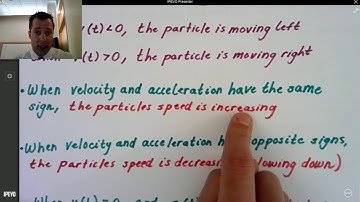 IPEVO Presenter
v(t)<0, the particle is moving left
v(t)>0, the particle is moving right
• When velocity and acceleration have the same
sign, the particles speed is increasing
• When velocity and acceleration opposite signs,
the particles speed is decreas lowing down)
When v(t)=0 and
IPEVO